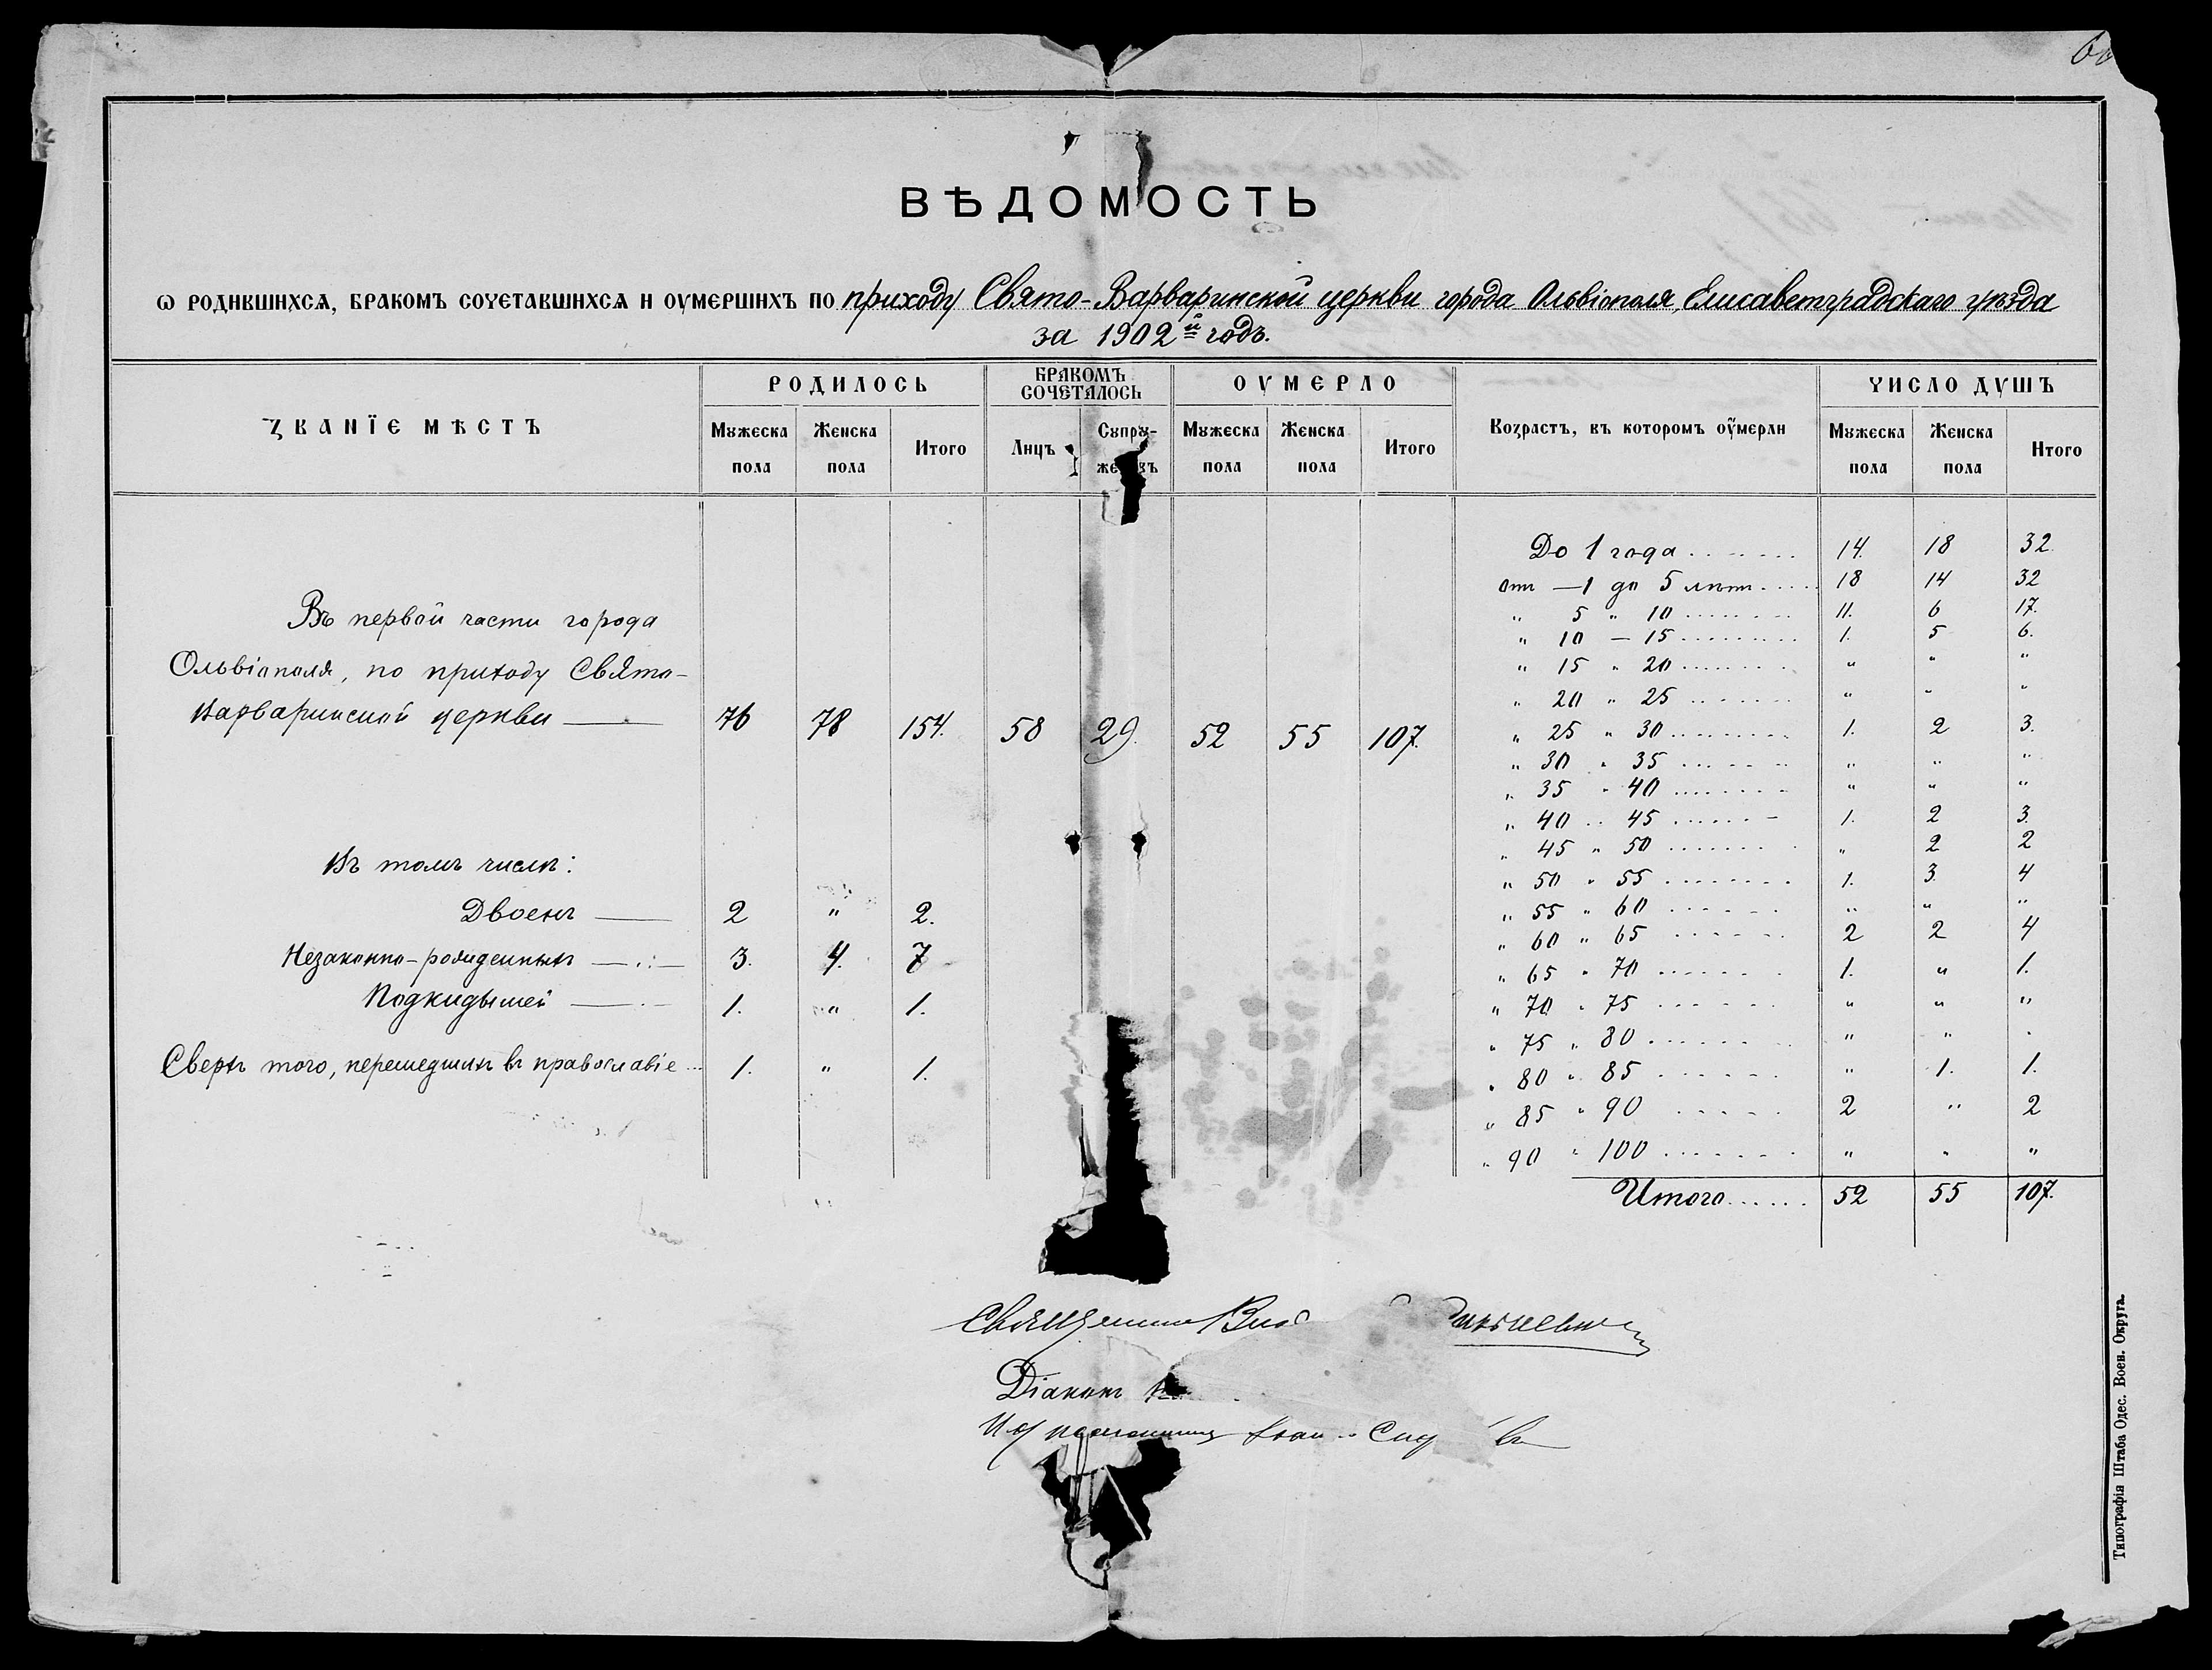 ВѢДОМОСТЬ
Ѡ РОДИВШИХСѦ, БРАКОМЪ СОЧЕТАВШИХСѦ И ОУМЕРШИХЪ ПО приходу Свято-Варваринской церкви города Ольвіополя, Елисаветградскаго уѣзда
за 1902й годъ.
ЗВАНЇЕ МѢСТЪ
РОДИЛОСЬ
БРАКОМЪ СОЧЕТАЛОСЬ
ОУМЕРЛО
Возрастъ, въ которомъ оумерли
ЧИСЛО ДУШЪ
Мужеска пола Женска пола Итого Лицъ Мужеска пола Женска пола Итого Мужеска пола Женска пола Итого
Въ первой части города
Ольвіополя, по приходу Свято-
Варваринской церкви — 76 78 154. 58 29. 52 55 107.
Въ томъ числѣ:
Двоенъ — 2 " 2.
Незаконно-рожденныхъ — 3. 4. 7
Подкидышей — 1. " 1.
Сверхъ того, перешедшихъ въ православіе... 1. " 1.
До 1 года ........ 14. 18 32.
отъ — 1 до 5 лѣтъ ..... 18 14 32
" 5 " 10 ........ 11. 6 17.
" 10 — 15 ......... 1. 5 6.
" 15 " 20 ........ " " "
" 20 " 25 ....... " " "
" 25 " 30 ......... 1. 2 3.
" 30 " 35 ....... " " "
" 35 " 40 ........ " " "
" 40 " 45 ...... - 1. 2 3.
" 45 " 50 ........ " 2 2
" 50 " 55 ........ 1. 3. 4
" 55 " 60 ...... " " "
" 60 " 65 ...... 2 2 4
" 65 " 70 ....... 1. " 1.
" 70 " 75 ...... " " "
" 75 " 80 ....... " " "
" 80 " 85 ...... " 1. 1.
" 85 " 90 ..... 2 " 2
" 90 " 100 ....... " " "
Итого...... 52 55 107.
Діаконъ
Типографія Штаба Одес. Воен. Округа.